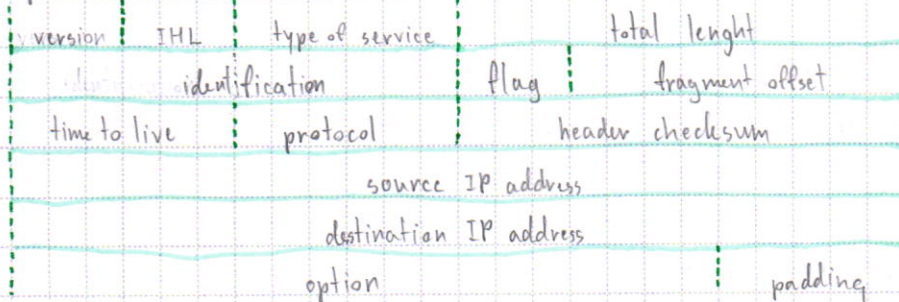 version IHL type of service total lenght
identification flag fragment offset
time to live protocol header checksum
source IP address
destination IP address
option padding